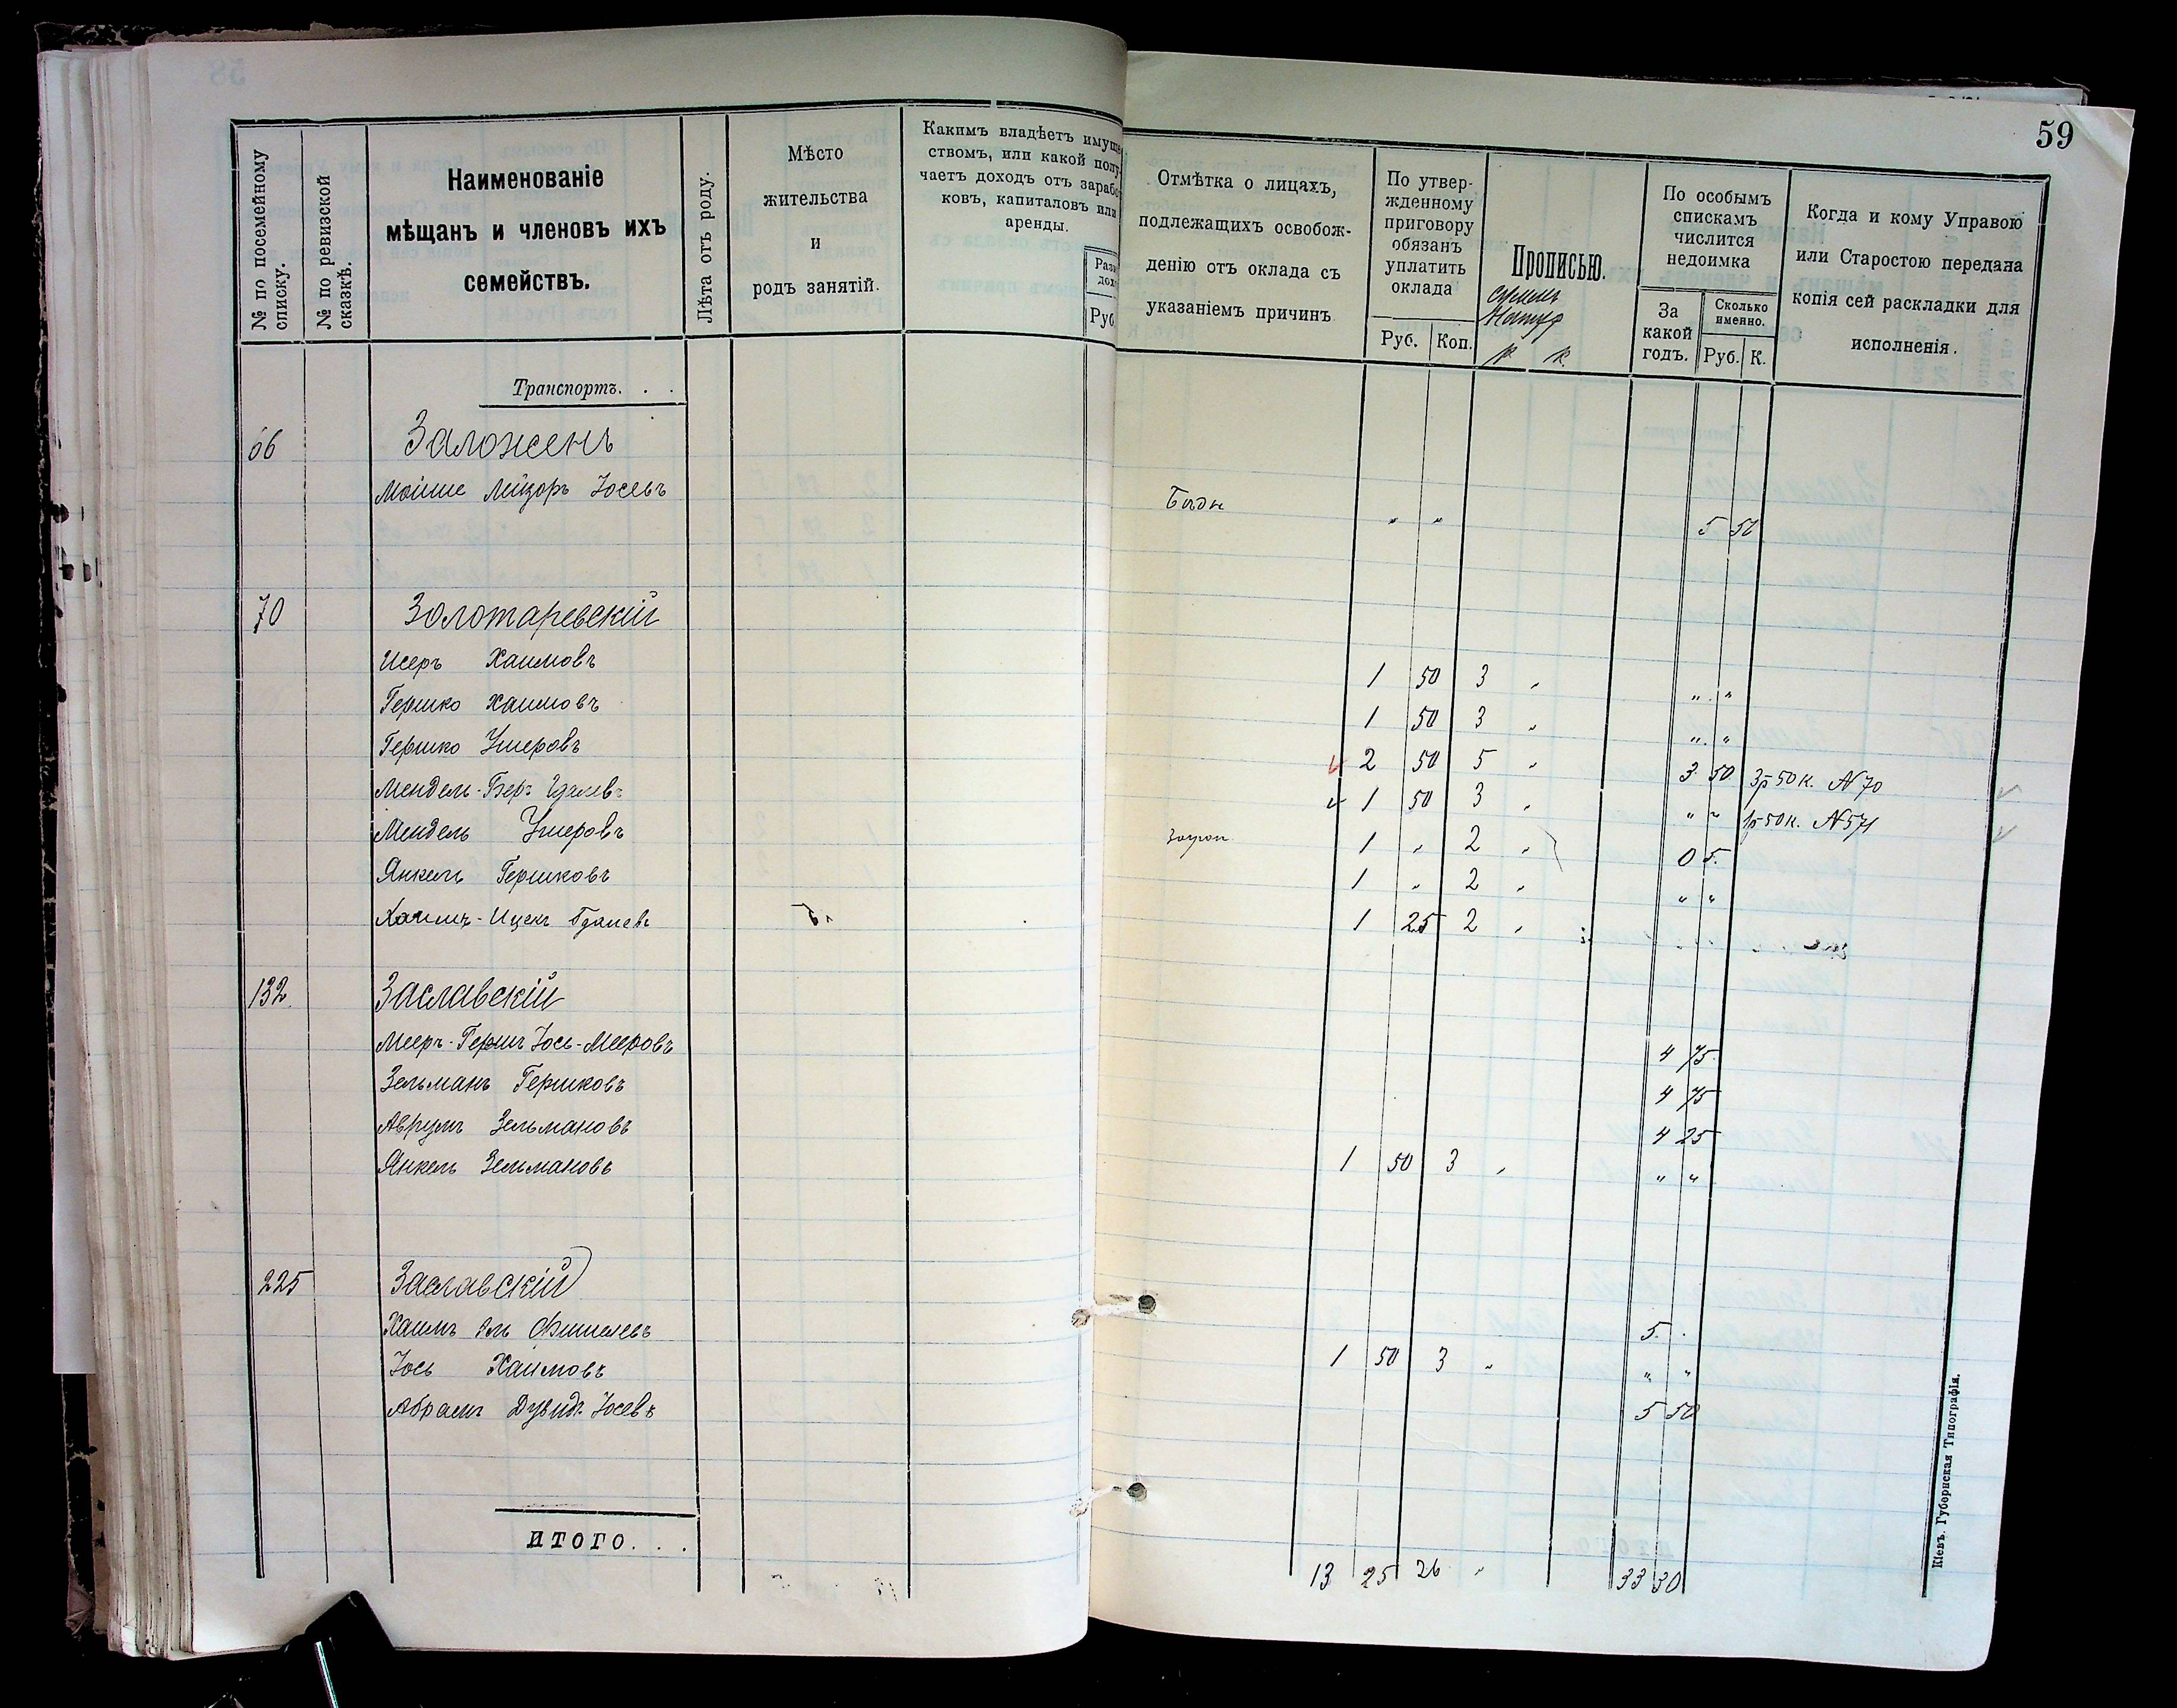 59
№ по посемейному списку.
№ по ревизской сказкѣ.
Наименованіе
мѣщанъ и членовъ ихъ
семействъ.
Лѣта отъ роду.
Мѣсто
жительства
и
родъ занятій.
Какимъ владѣетъ имуще
ствомъ, или какой полу
чаетъ доходъ отъ зарабо
ковъ, капиталовъ или
аренды.
Руб.
Отмѣтка о лицахъ,
подлежащихъ освобож-
денію отъ оклада съ
указаніемъ причинъ
По утвер-
жденному
приговору
обязанъ
уплатить
оклада
Руб. Коп.
Прописью.
По особымъ
спискамъ
числится
недоимка
За
какой
годъ.
Сколько
именно.
Руб. К.
Когда и кому Управою
или Старостою передана
копія сей раскладки для
исполненія.
Транспортъ. . .
66 Заложенъ
Мойше Лейзоръ Іосевъ " " 5 50
70 Золотаревскій
Исеръ Хаимовъ 1 50 3 " " "
Гершко Хаимовъ 1 50 3 " " "
Гершко Умеровъ 2 50 5 " 3 50 3р 50 к. № 70
Мендель-Беръ 1 50 3 " " " 1р 50к. № 571
Мендель Умеровъ 1 " 2 " 0 5.
Янкель Гершковъ 1 " 2 " " "
Хаимъ-Ицекъ 1 25 2 "
132. Заславскій
Мееръ-Гершъ Іось-Мееровъ 4 75.
Зельманъ Гершковъ 4 75
Аврумъ Зельмановъ 4 25
Янкель Зельмановъ 1 50 3 " " "
225 Заславскій
Хаимъ Эль Фишелевъ 5. .
Іось Хаимовъ 1 50 3 " " "
Абрамъ Дувидъ Іосевъ 5 50
ИТОГО. . .
13 25 26 " 33 30
Кіевъ. Губернская Типографія.